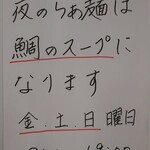 夜のらぁ麺は
鯛のスープに
なります
金.土.日曜日